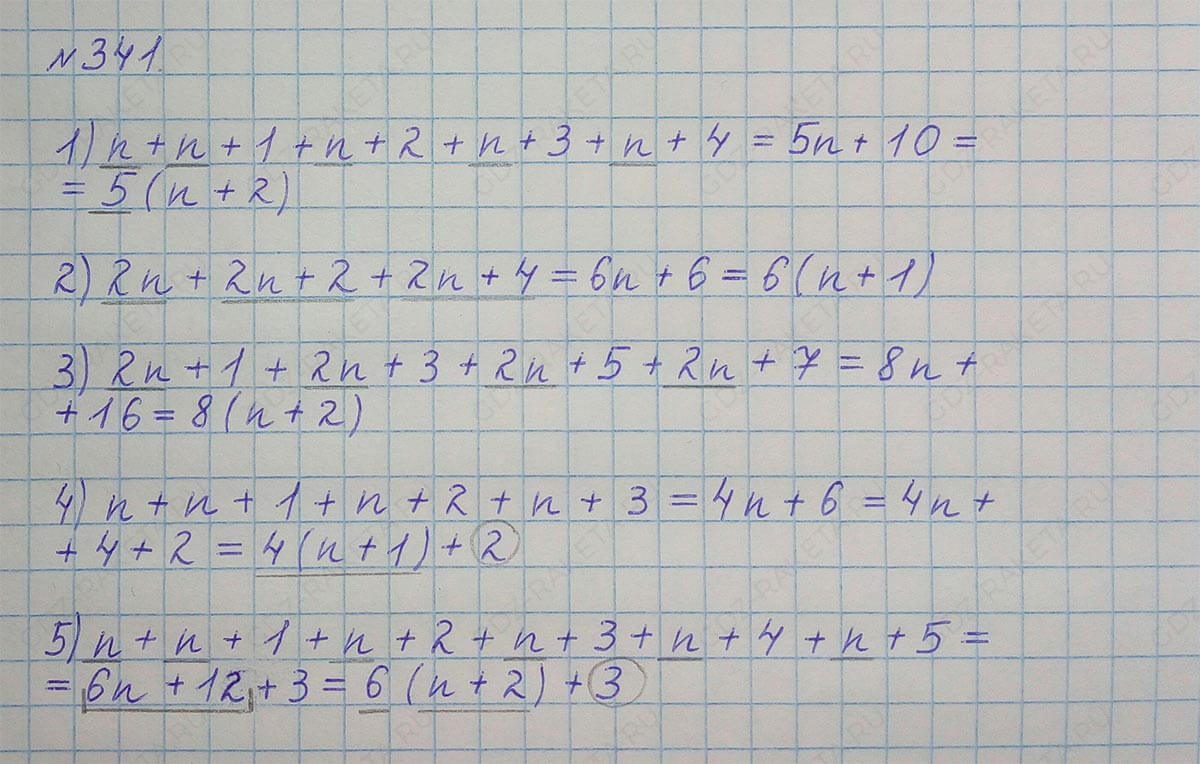 №341.
1) n + n + 1 + n + 2 + n + 3 + n + 4 = 5n + 10 =
= 5 (n + 2)
2) 2n + 2n + 2 + 2n + 4 = 6n + 6 = 6 (n + 1)
3) 2n + 1 + 2n + 3 + 2n + 5 + 2n + 7 = 8n +
+ 16 = 8 (n + 2)
4) n + n + 1 + n + 2 + n + 3 = 4n + 6 = 4n +
+ 4 + 2 = 4 (n + 1) + 2
5) n + n + 1 + n + 2 + n + 3 + n + 4 + n + 5 =
= 6n + 12 + 3 = 6 (n + 2) + 3
GDZ-RAKETA.RU